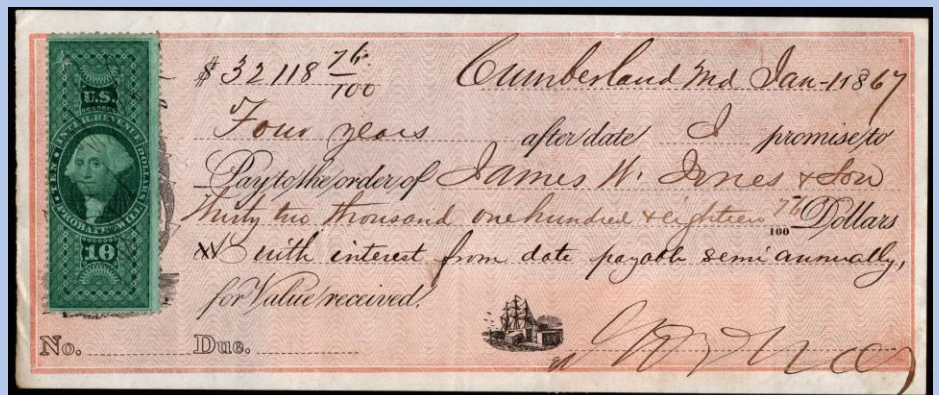 U.S.
INTER. REVENUE
TEN DOLLARS
PROBATE OF WILL
10
$ 32118 76/100 Cumberland Md Jan-1 1867
Four years after date I promise to
Pay to the order of James W. Jones & Son
thirty two thousand one hundred & eighteen 76/100 Dollars
with interest from date payable semi annually,
for Value received.
No. Due.